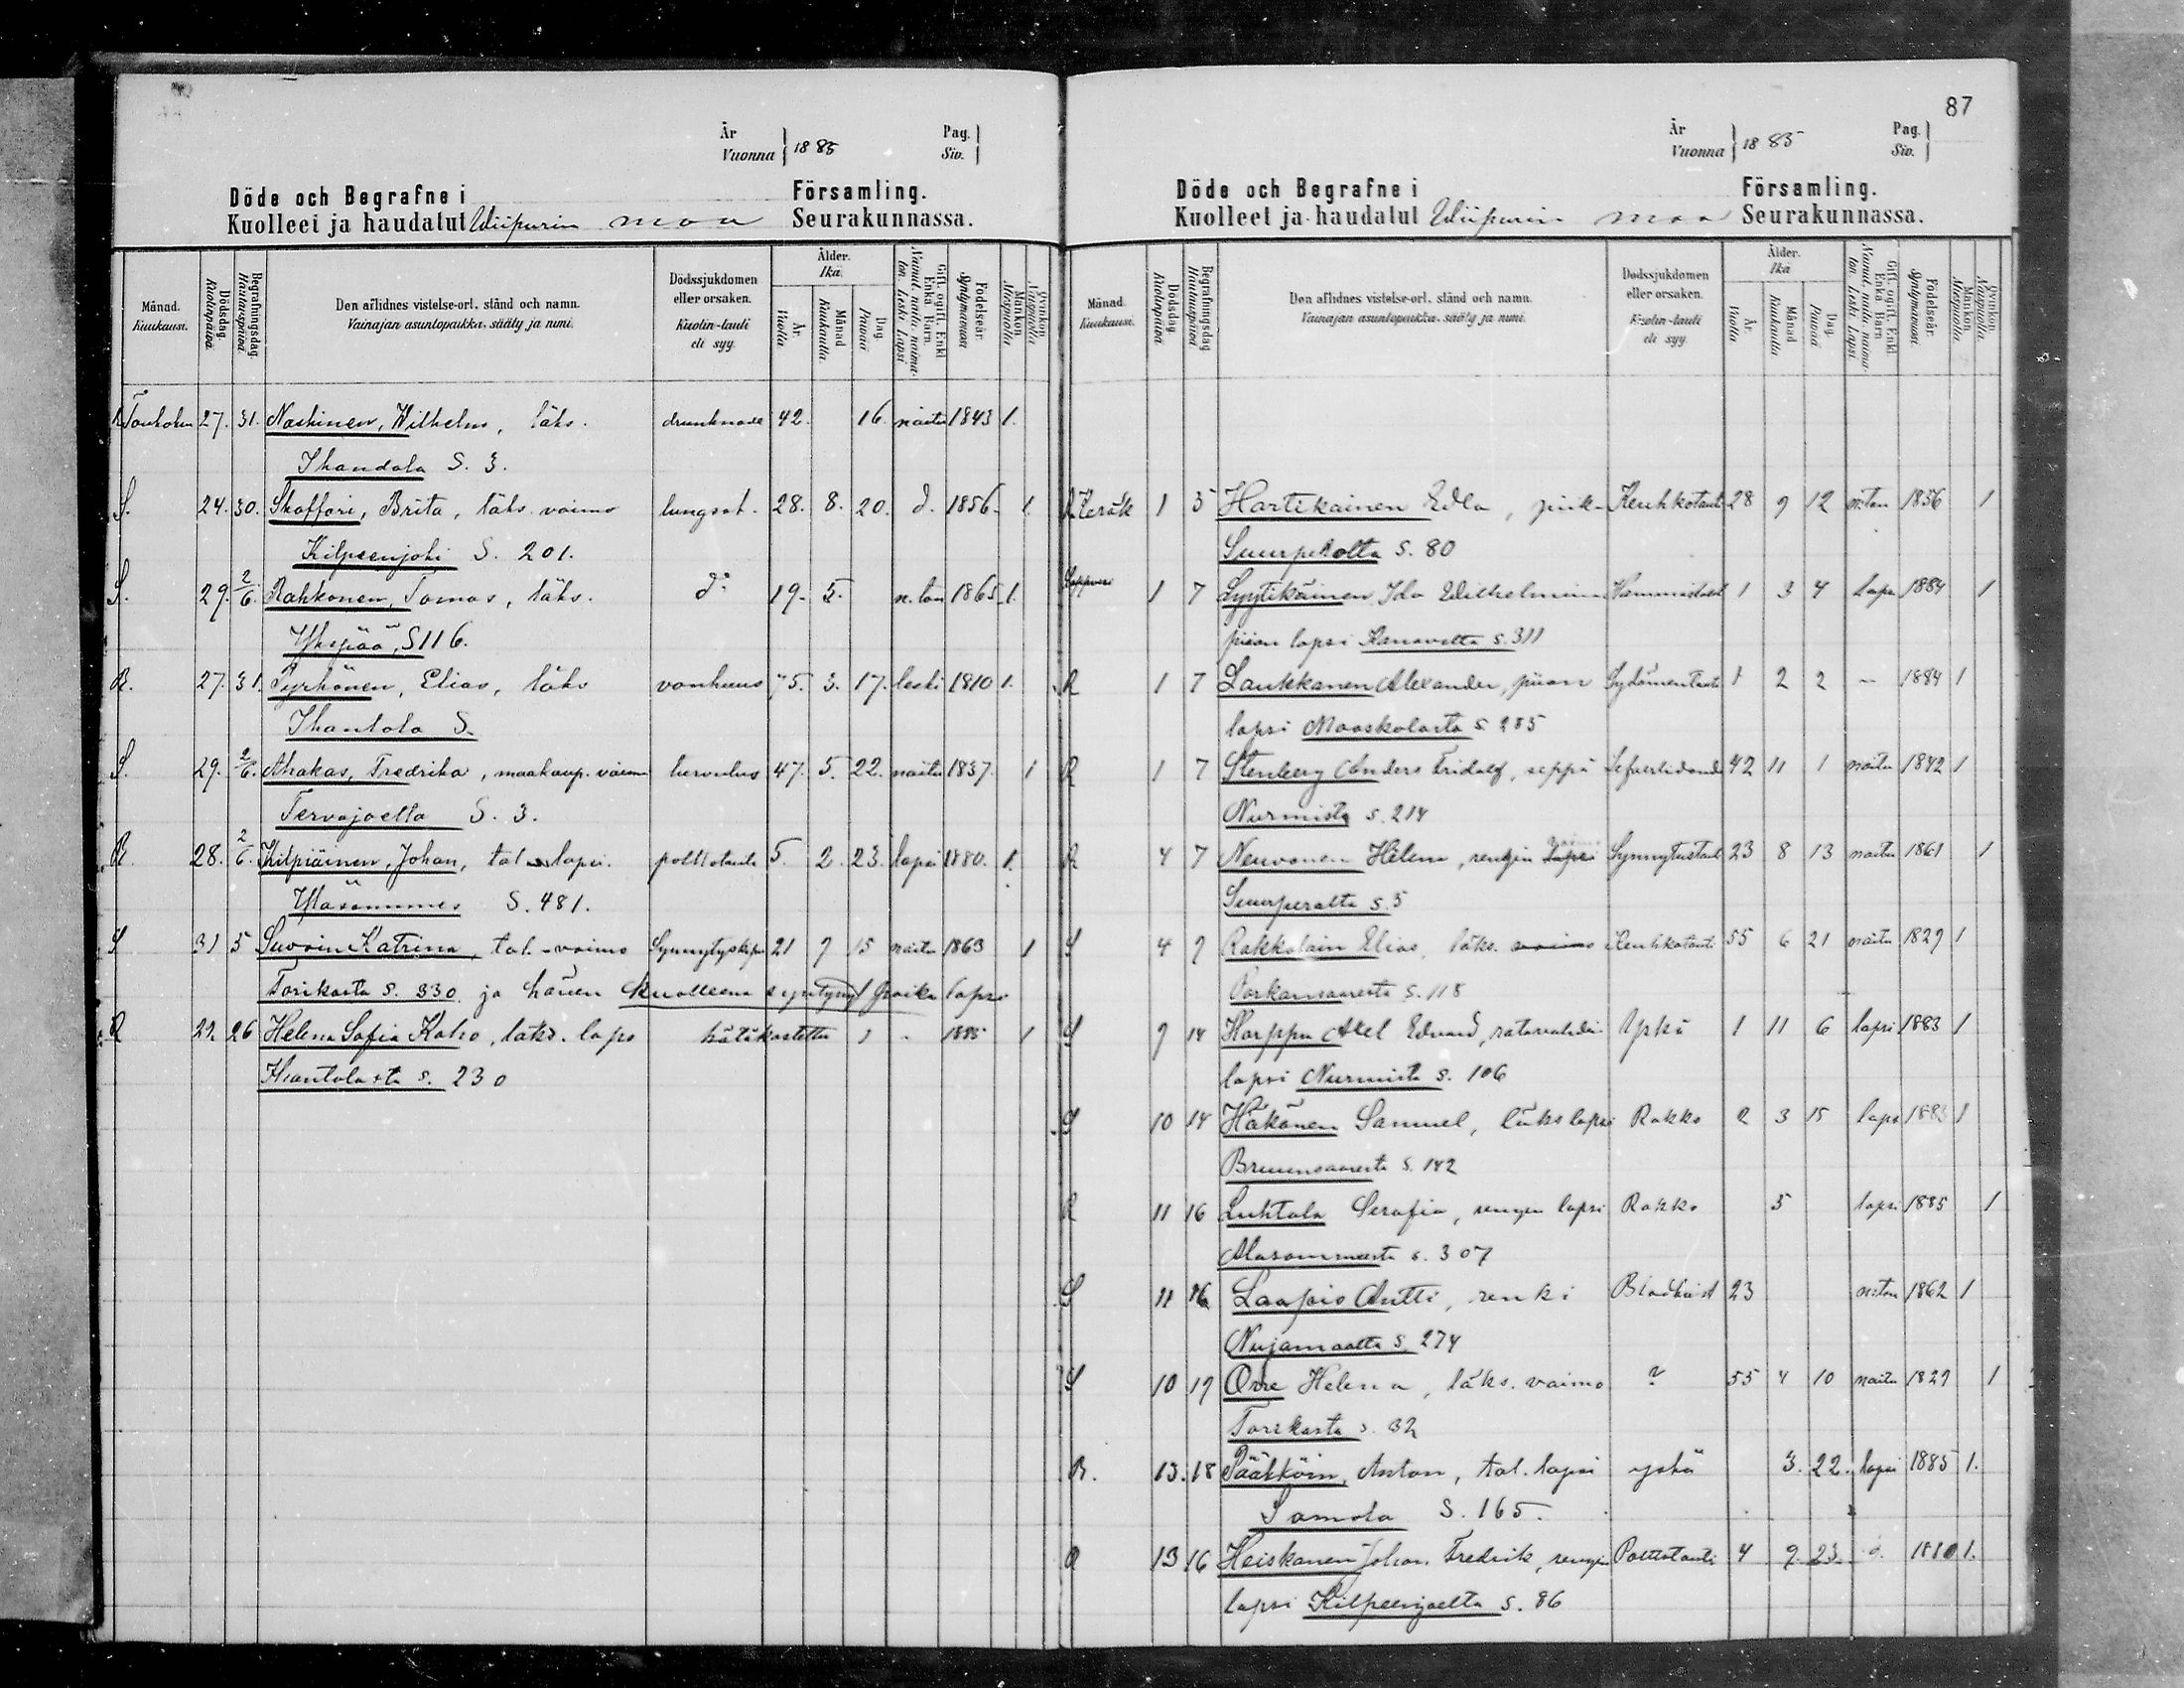 År
Vuonna } 1885 Pag.
Siv. }
Döde och Begrafne i Församling.
Kuolleet ja haudatut Wiipurin maa Seurakunnassa.
Månad. Kuukausi. Dödsdag. Kuolinpäivä. Begrafningsdag. Hautauspäivä. Den aflidnes vistelse-ort, stånd och namn. Vainajan asuntopaikka, sääty ja nimi. Dödssjukdomen eller orsaken. Kuolin-tauti eli syy. Ålder. Ikä. År. Vuotta. Månad. Kuukautta. Dag. Päivää. Gift, ogift, Enkl. Enka, Barn. Nainut, naitu, naimaton, Leski, Lapsi. Födelseår. Syntymävuosi. Mankön. Miespuolia. Qvinkön. Naispuolia.
Toukokuu 27. 31. Naskinen, Wilhelm, läks. drunknade 42. 16. naitu 1843 1.
Ihandala S. 3.
S. 24. 30. Skaffari, Brita, läks. vaimo lungsot. 28. 8. 20. d. 1856. 1.
Kilpeenjoki S. 201.
S. 29. 2/6. Rahkonen, Tomas, läks. d:o 19. 5. n. ton 1865 1.
Ykspää, S 116.
R. 27. 31. Pyrhönen, Elias, läks vanhuus 75. 3. 17. leski 1810 1.
Ihantola S.
S. 29. 2/6. Ahakas, Fredrika, maakaup. vaimo 47. 5. 22. naitu 1837. 1
Tervajoelta S. 3.
R. 28. 2/6. Kilpiäinen, Johan, tal. lapsi. polttotauti 5. 2. 23. lapsi 1880. 1.
Yläsommee S. 481.
S 31 5 Suvoin Katrina, tal.-vaimo 21 9 15 naitu 1863 1
Torikasta S. 330 ja hänen kuolleena syntynyt poika lapsi
R 29. 26 Helena Sofia Koho, läks. laps hätäkastettu 1 1885 1
Hiantolasta s. 230
87
År
Vuonna } 1885 Pag.
Siv. }
Döde och Begrafne i Församling.
Kuolleet ja haudatut Wiipurin maa Seurakunnassa.
Månad. Kuukausi. Dödsdag. Kuolinpäivä. Begrafningsdag. Hautauspäivä. Den aflidnes vistelse-ort, stånd och namn. Vainajan asuntopaikka, sääty ja nimi. Dödssjukdomen eller orsaken. Kuolin-tauti eli syy. Ålder. Ikä. År. Vuotta. Månad. Kuukautta. Dag. Päivää. Gift, ogift, Enkl. Enka, Barn. Nainut, naitu, naimaton, Leski, Lapsi. Födelseår. Syntymävuosi. Mankön. Miespuolia. Qvinkön. Naispuolia.
R Kesäk 1 5 Hartikainen Edla, piika Keuhkotauti 28 9 12 n:ton 1856 1
Suurperolta S. 80
1 7 Lyytikäinen Ida Wilhelmina 1 3 4 lapsi 1884 1
piian lapsi Kanavalta s. 311
R 1 7 Laukkanen Alexander, piian Sydämentauti 1 2 2 " 1884 1
lapsi Maaskolasta s. 285
R 1 7 Stenberg Anders Fridolf, seppä Lefverlidande 42 11 1 naitu 1842 1
Nurmista s. 214
R 4 7 Neuvonen Helena, rengin vaimo Synnytustauti 23 8 13 naitu 1861 1
Suurperalta s. 5
S 4 9 Rakkolain Elias, läks. Keuhkotauti 55 6 21 naitu 1829 1
Porkansaaresta s. 118
S 9 14 Harppu Axel Eduard, ratavahdin Yskä 1 11 6 lapsi 1883 1
lapsi Nurmista s. 106
S 10 14 Häkänen Samuel, läks lapsi Rokko 2 3 15 laps 1883 1
Bruunsaaresta s. 142
R 11 16 Luhtala Serafia, rengin lapsi Rokko 5 lapsi 1885 1
Alasommeesta s. 307
S 11 16 Laapio Antti, renki 23 n:ton 1862 1
Nujamaalta s. 274
S 10 19 Orre Helena, läks. vaimo ? 55 4 10 naitu 1829 1
Torikasta s. 32
R. 13. 18 Pääkköin, Anton, tal. lapsi yskä 3. 22. lapsi 1885 1.
Samola S. 165.
R 13 16 Heiskanen Johan Fredrik, rengin Polttotauti 4 9 23 d. 1880 1.
lapsi Kilpeenjoelta s. 86